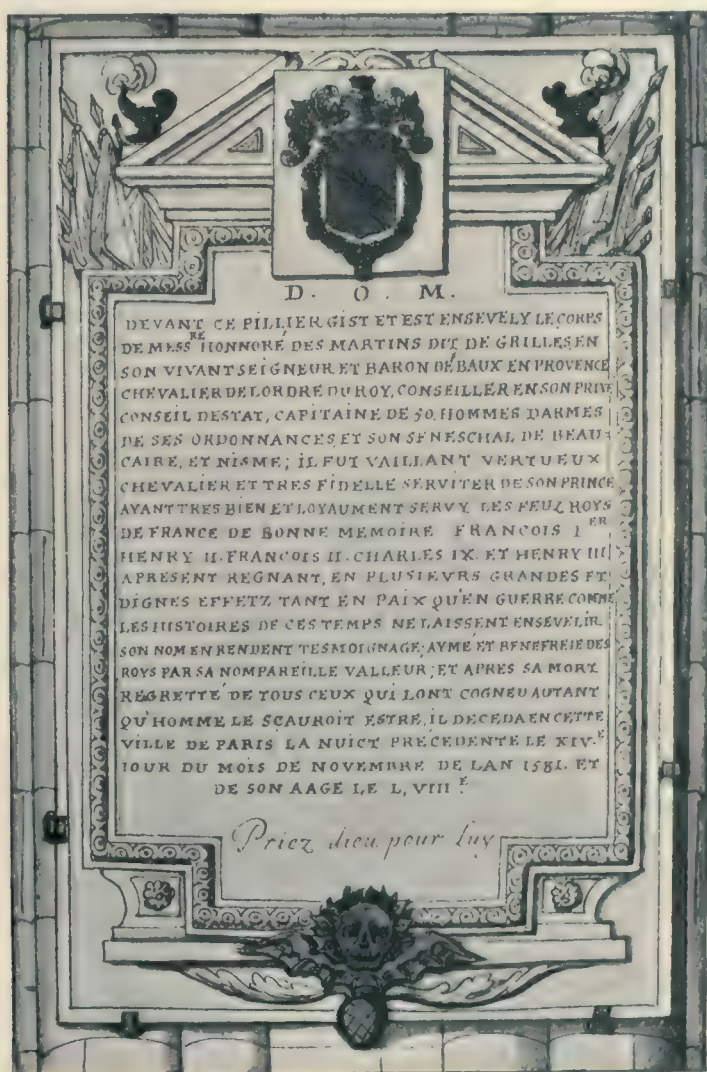 D. O. M.
DEVANT CE PILLIER GIST ET EST ENSEVELY LE CORPS
DE MESS.RE HONNORÉ DES MARTINS DIT DE GRILLES, EN
SON VIVANT SEIGNEUR ET BARON DÉ BAUX EN PROVENCE
CHEVALIER DE LORDRE DU ROY, CONSEILLER EN SON PRIVÉ
CONSEIL DESTAT, CAPITAINE DE 50. HOMMES DARMES
DE SES ORDONNANCES, ET SON SENESCHAL DE BEAU-
CAIRE, ET NISME; IL FUT VAILLANT VERTUEUX
CHEVALIER ET TRES FIDELLE SERVITER DE SON PRINCE
AYANT TRES BIEN ET LOYAUMENT SERVY LES FEUZ ROYS
DE FRANCE DE BONNE MEMOIRE FRANCOIS I.ER
HENRY II. FRANCOIS II. CHARLES IX. ET HENRY III
APRESENT REGNANT, EN PLUSIEVRS GRANDES ET
DIGNES EFFETZ TANT EN PAIX QU'EN GUERRE COMME
LES HISTOIRES DE CES TEMPS NE LAISSENT ENSEVELIR.
SON NOM EN RENDENT TESMOIGNAGE; AYMÉ ET BENEFREIE DES
ROYS PAR SA NOMPAREILLE VALLEUR; ET APRES SA MORT
REGRETTÉ DE TOUS CEUX QUI LONT COGNEU AUTANT
QU'HOMME LE SCAUROIT ESTRE, IL DECEDA EN CETTE
VILLE DE PARIS LA NUICT PRECEDENTE LE XIV.E
IOUR DU MOIS DE NOVEMBRE DE LAN 1581. ET
DE SON AAGE LE L, VIII.E
Priez dieu pour luy